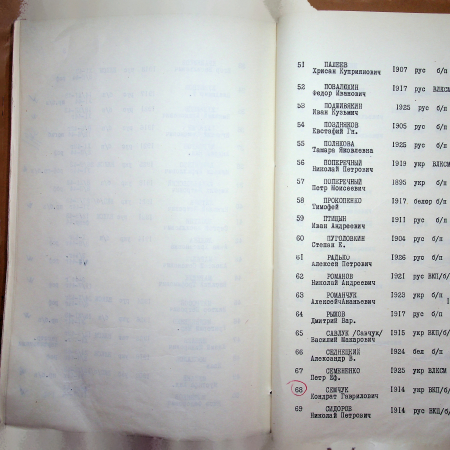 51 ПАЛЕЕВ
Хрисан Куприянович 1907 рус б/п
52 ПОВАЛЮХИН 1917 рус ВЛКСМ
Федор Иванович
53 ПОДШИВЯКИН 1925 рус б/п
Иван Кузьмич
54 ПОЗДНЯКОВ 1905 рус б/п
Евстафий Гн.
55 ПОЛЯКОВА 1925 рус б/п
Тамара Яковлевна
56 ПОПЕРЕЧНЫЙ 1919 укр ВЛКСМ
Николай Петрович
57 ПОПЕРЕЧНЫЙ 1895 укр б/п
Петр Моисеевич
58 ПРОКОПЕНКО 1917 белор б/п
Тимофей
59 ПТИЦЫН 1911 рус б/п
Иван Андреевич
60 ПУГОЛОВКИН 1904 рус б/п
Степан К.
61 РАДЬКО 1926 рус б/п
Алексей Петрович
62 РОМАНОВ 1921 рус ВКП/б/
Николай Андреевич
63 РОМАНЧУК 1923 укр б/п
Алексей Ананьевич
64 РЫКОВ 1917 рус б/п
Дмитрий Вар.
65 САВЛУК /Савчук/ 1915 укр ВКП/б/
Василий Макарович
66 СЕЛНЕЦКИЕ 1924 бел б/п
Александр В.
67 СЕМЕНЕНКО 1925 укр ВЛКСМ
Петр Еф.
68 СЕМЧУК 1914 укр ВКП/б/
Кондрат Гаврилович
69 СИДОРОВ 1914 рус ВКП/б/
Николай Петрович